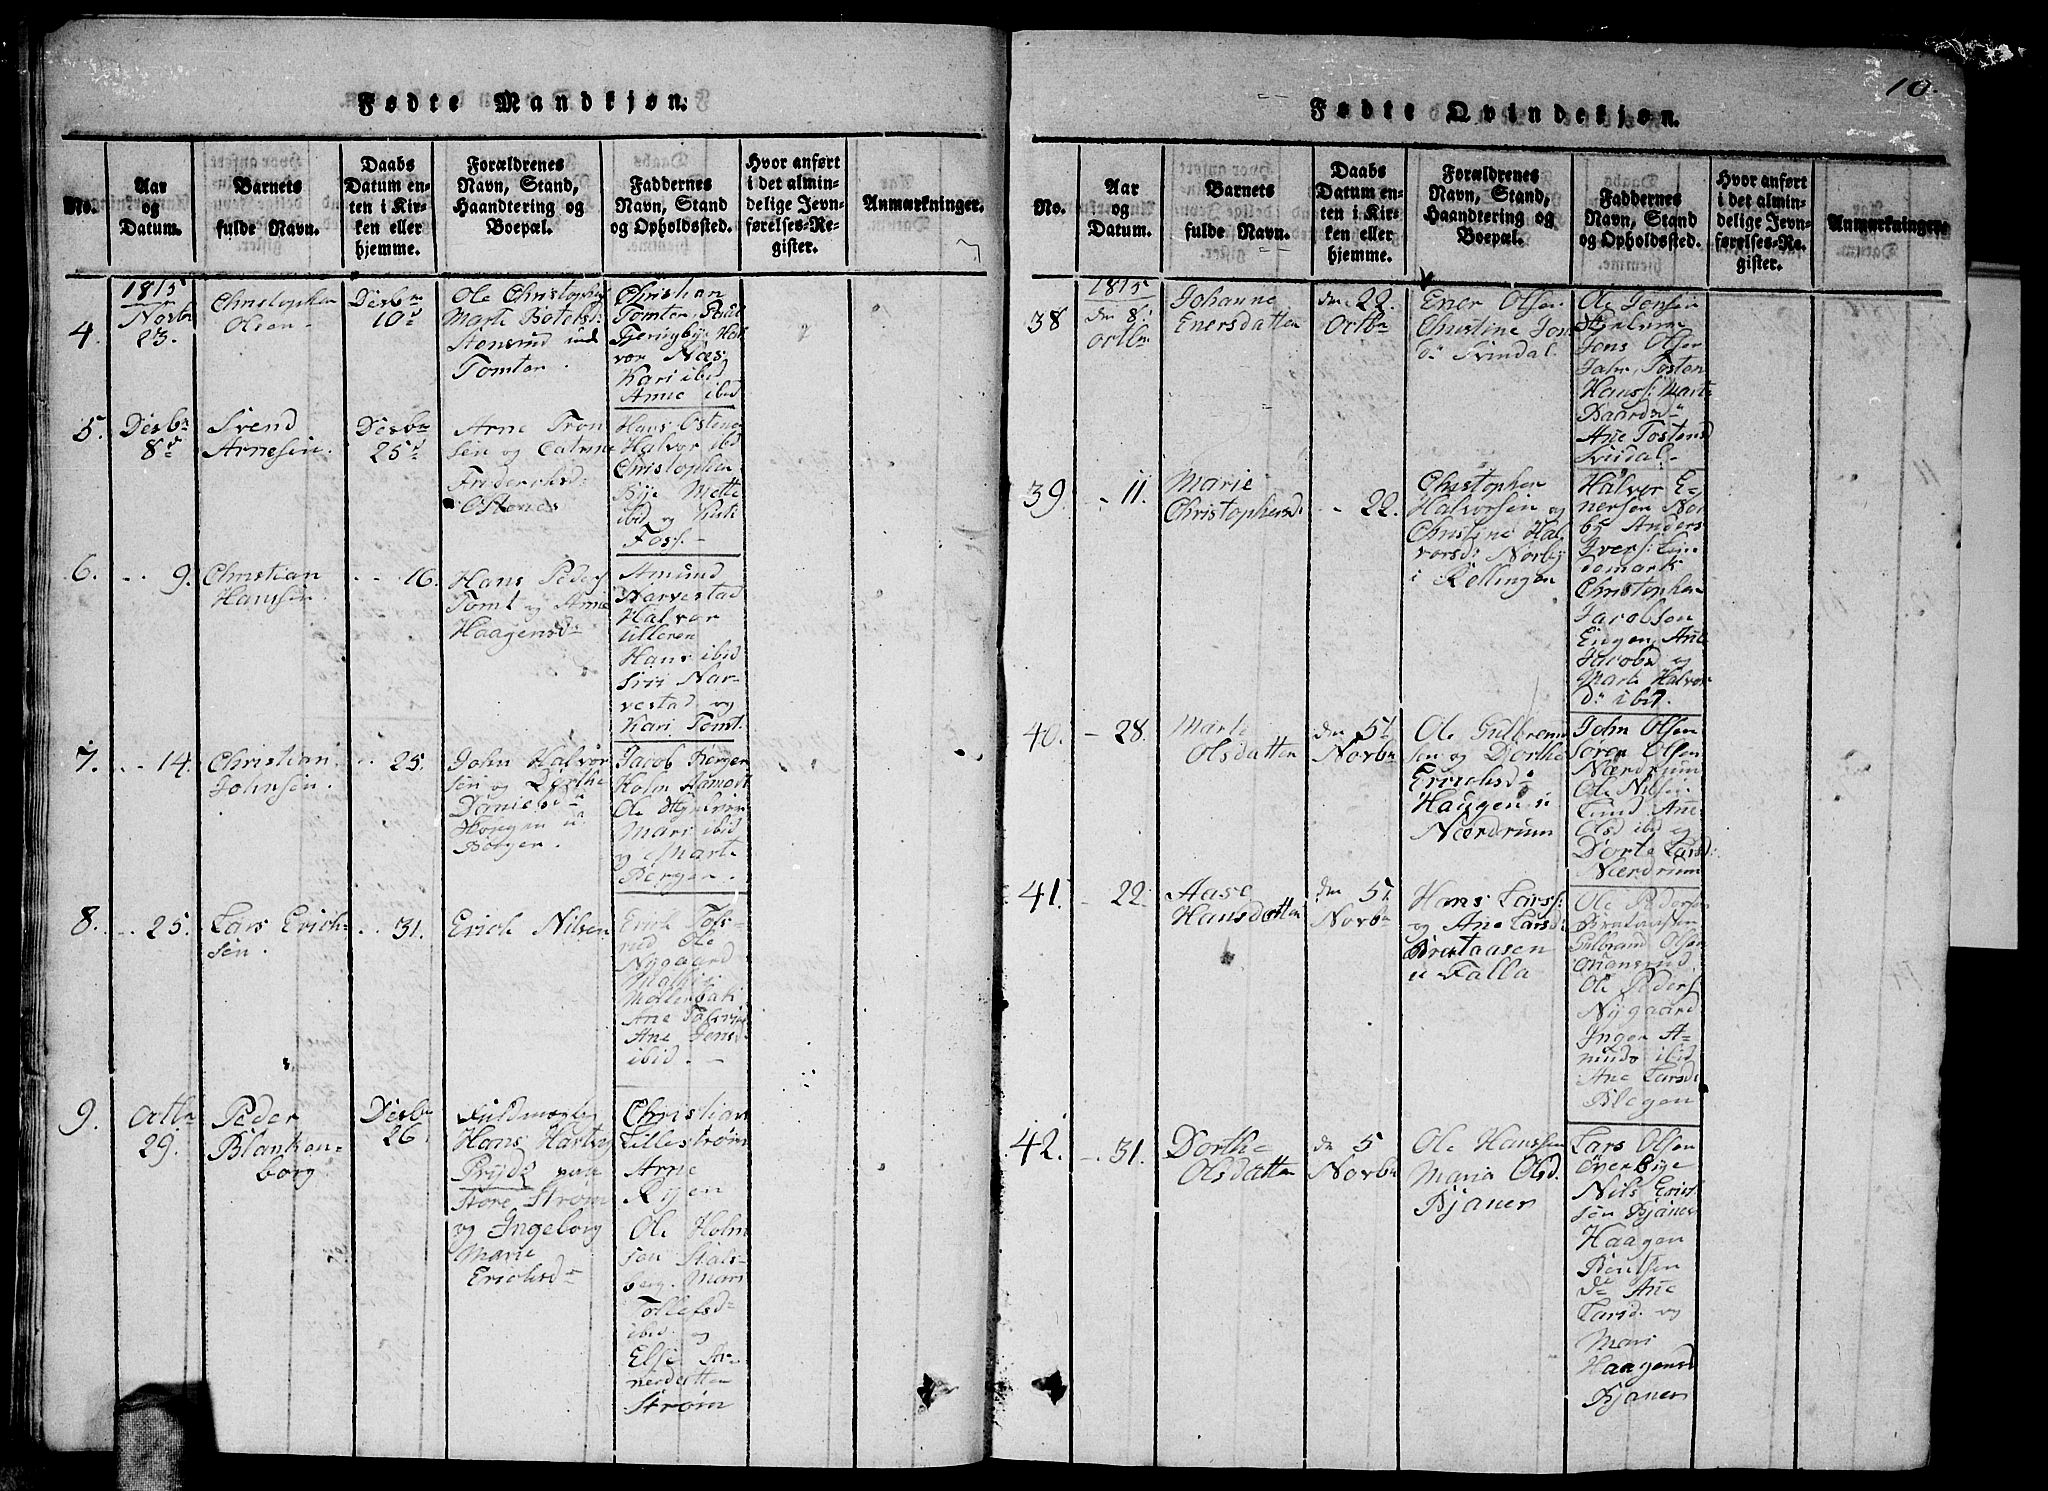 Fødte Mandkjøn.
No.
Aar
og
Datum.
Barnets
fulde Navn.
Daabs
Datum en-
ten i Kir-
ken eller
hjemme.
Forældrenes
Navn, Stand,
Haandtering og
Boepæl.
Faddernes
Navn, Stand
og Opholdssted.
Hvor anført
i det almin-
delige Jevn-
førelses-Re-
gister.
Anmærkninger.
4.
1815
Novbr
23.
Christopher
Olsen
Desbr
10d
Ole Christophs
Marte
Stensrud
Tomter.
Christian
Tomter,
vor Næs
Kari ibid
Anne ibid
5.
Desbr
8d
Svend
Arnesen.
Desbr
25d
Arne Tron
sen og Catrine
Frideriksd
Ostenes
Hans Ostenes
Halvor ibid
Christopher
Bye Mette
ibid og
Foss.
6.
9.
Christian
Hansen.
16.
Hans Peders
Tomt og Anne
Haagensd
Amund
Narvestad
Halvor
Ulleren
Hans ibid
Siri Nar-
vestad og
Kari Tomt.
7.
14.
Christian
Johnsen.
25.
John Halvor
sen og Dorthe
Danielsd
Borgen
Jacob Berger
Holm
Ole
Mari ibid
og Marte
Berger.
8.
25.
Lars Erich-
sen.
31.
Erich Nilsen
Erich
Ole
Nygaard
Ane
Ane Jonsd
ibid.
9.
Octbr
29.
Peder
Blanken-
borg
Desbr
26.
Hans Hartvig
Pryds paa
Store Strøm
og Ingeborg
Marie
Erichsd
Christian
Lillestrøm
Arne
Ryen
Ole Holm
sen Stals-
berg. Mari
Tollefsd
ibid. og
Else Ar-
nesdatter
Strøm
10.
Fødte Qvindekjøn.
No.
Aar
og
Datum.
Barnets
fulde Navn.
Daabs
Datum en-
ten i Kir-
ken eller
hjemme.
Forældrenes
Navn, Stand,
Haandtering og
Boepæl.
Faddernes
Navn, Stand
og Opholdssted.
Hvor anført
i det almin-
delige Jevn-
førelses-Re-
gister.
Anmærkninger.
38
1815
den 8
Octbr
Johanne
Enersdatter
den 22
Octbr
Ener Olsen
Christine Jon
d: Svindal.
Ole Jensen
Hjelme
Jens Olsen
Tosten
Hanss: Marte
Baardsd
Ane Tostensd
Svidal.
39.
11.
Marie
Christophersd:
22.
Christopher
Halvorsen og
Christine Hal
vorsd: Norby
i Rellingen
Halvor E-
nersen Nor
by Anders
Ivers: Lin
demark
Christopher
Jacobsen
Engen, Ane
Jacobsd og
Marte Halvor
d: ibid.
40.
28.
Marte
Olsdatter
den 5t
Novbr
Ole Gulbrand
sen og Dorthe
Erichsd:
Haugen u
Nærdrum
John Olsen
Søren Olsen
Nærdrum
Ole Nilsen
Lund Ane
Olsd ibid og
Dorte Larsd:
Nærdrum
41.
22.
Aase
Hansdatter
den 5t
Novbr
Hans Larss:
og Ane Larsd:
Brataasen
u Falla
Ole Pedersen
Brataasen
Gulbrand Olsen
Ole Peders
Nygaard
Inger A-
munds ibid
Ane Larsd:
Blegen
42.
31.
Dorthe
Olsdatter
d 5
Novbr
Ole Hanssen
Maria Olsd.
Bjaner
Lars Olsen
Overbye
Nils Erich
sen Bjaner
Haagen
Bentsen
do Ane
Larsd. og
Mari
Haagensd
Bjaner